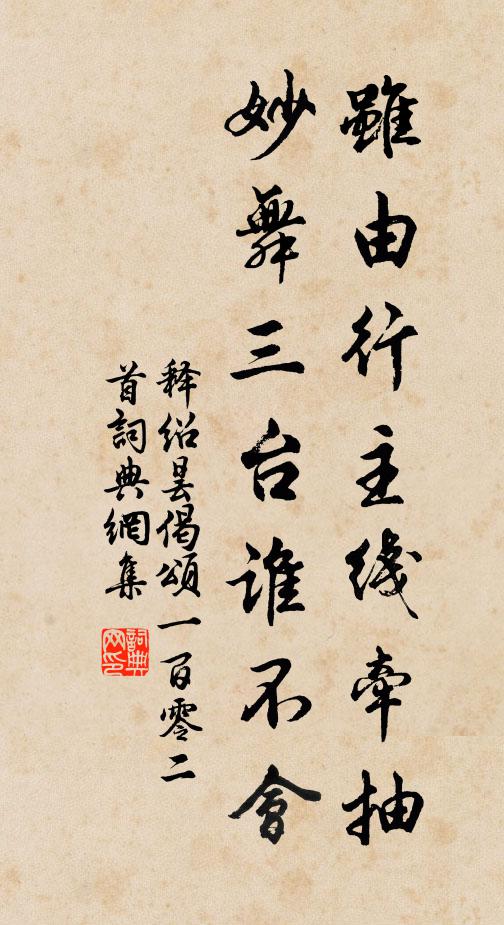 雖由行主綫牽抽
妙舞三台誰不會
释紹曇偈頌一百零二
首詞典網集
詞典网印